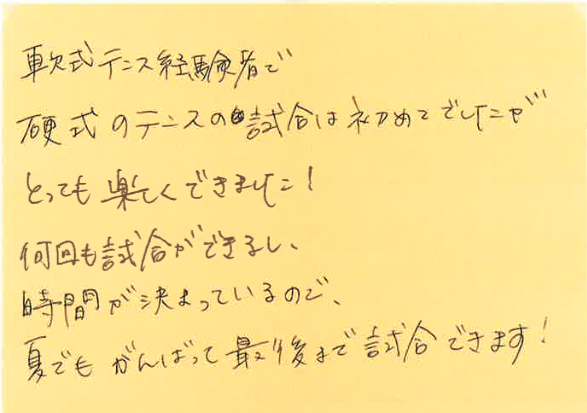 軟式テニス経験者で
硬式のテニスの試合は初めてでしたが
とっても楽しくできました!
何回も試合ができるし、
時間が決まっているので、
夏でもがんばって最後まで試合できます!